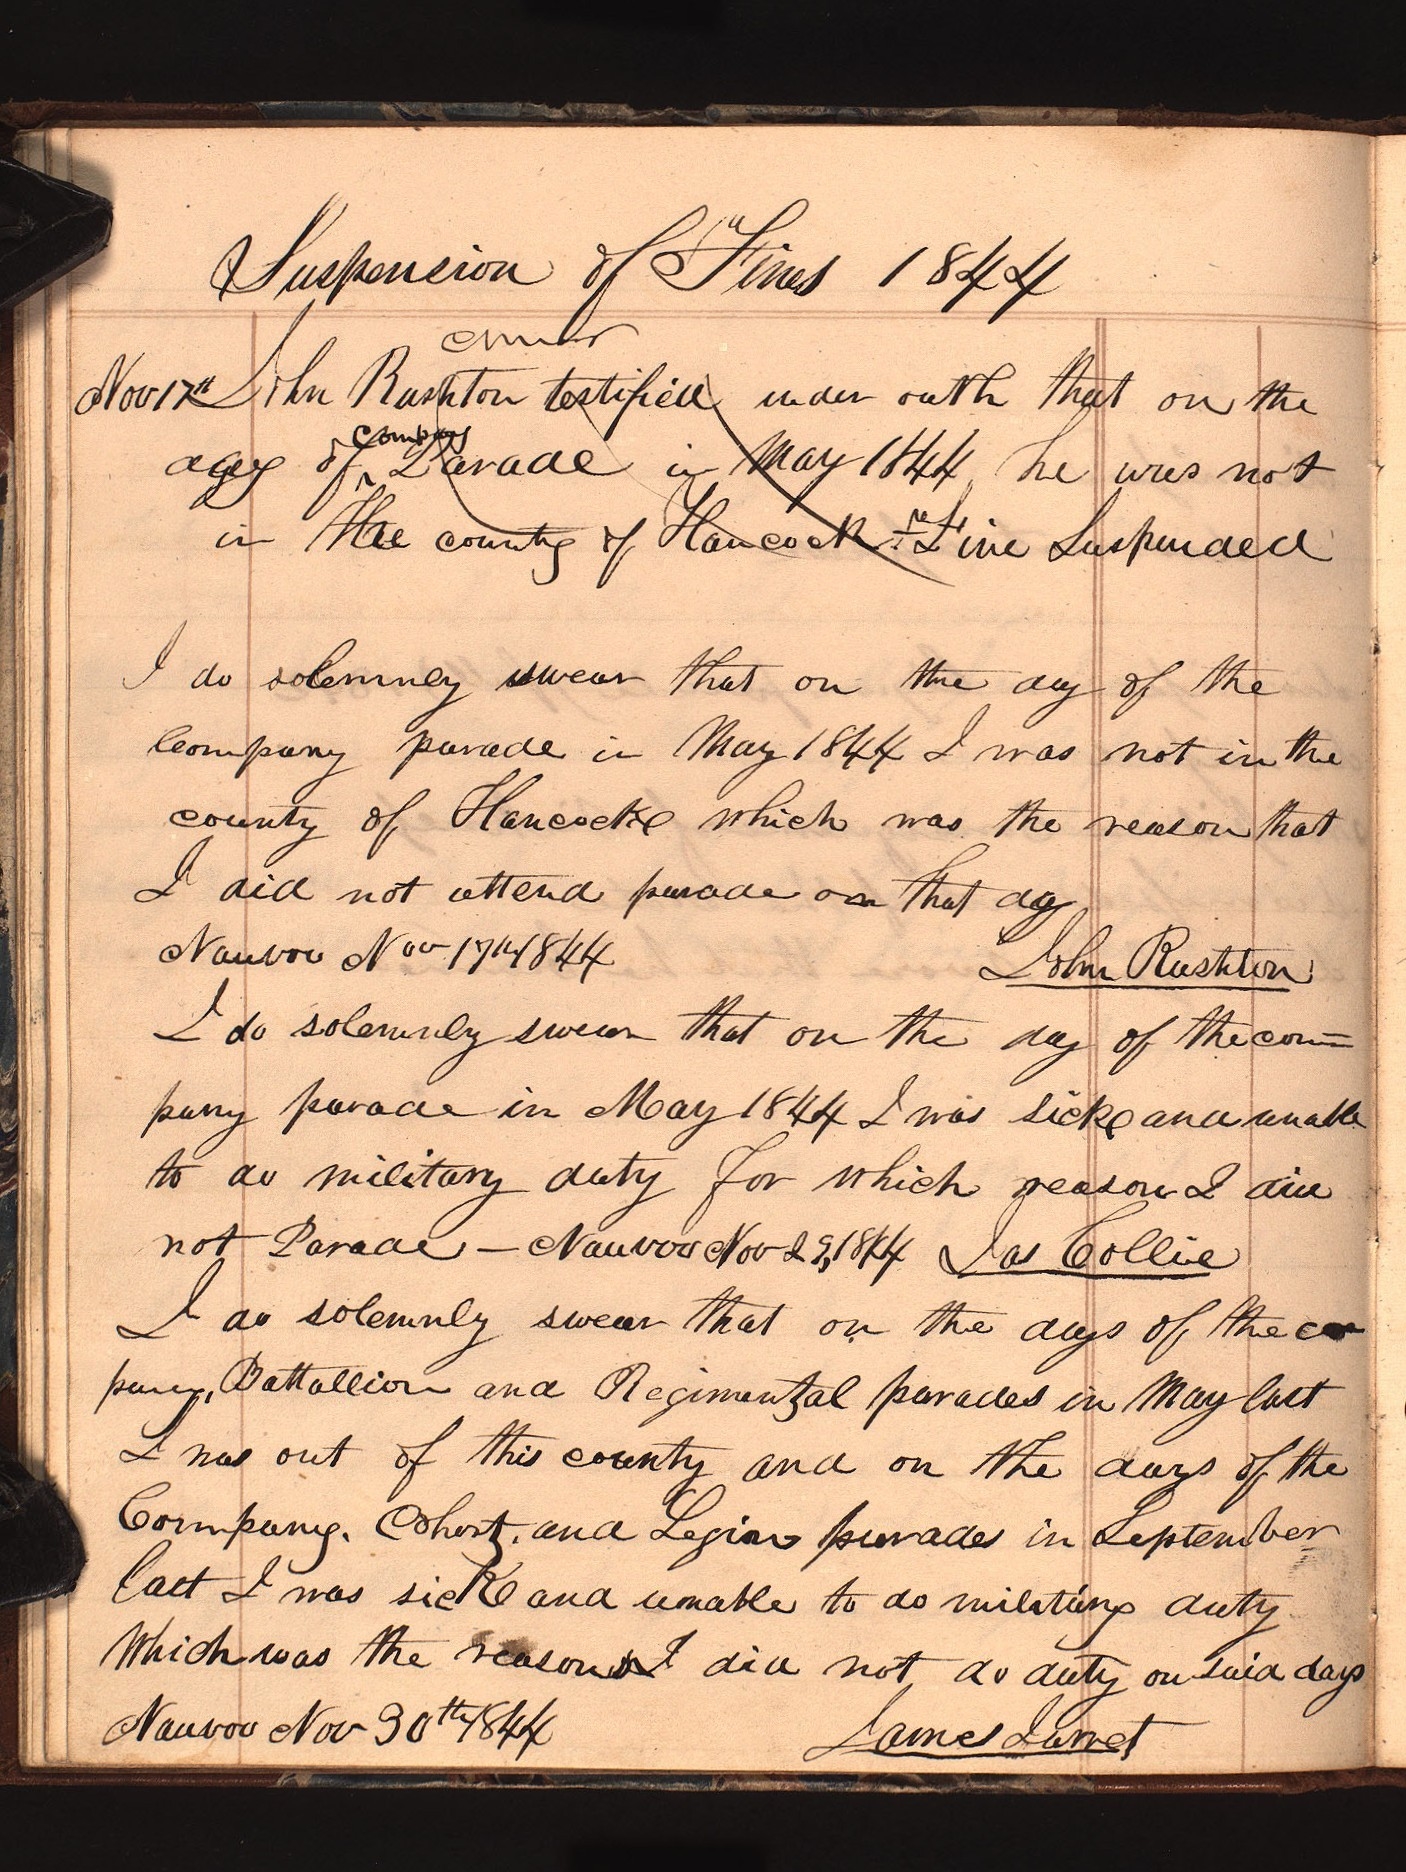 Suspension of Fines 1844
error
Nov 17th John Rushton testified under oath that on the
day of company Parade in May 1844 he was not
in the county of Hancock. Fine Suspended
I do solemnly swear that on the day of the
Company parade in May 1844 I was not in the
county of Hancock which was the reason that
I did not attend parade on that day
Nauvoo Nov 17th 1844 John Rushton
I do solemnly swear that on the day of the com=
pany parade in May 1844 I was sick and unable
to do military duty for which reason I did
not Parade — Nauvoo Nov 29, 1844 Jas Collie
I do solemnly swear that on the days of the com
pany, Battallion and Regimental parades in May last
I was out of this county and on the days of the
Company. Cohort. and Legion parades in September
last I was sick and unable to do military duty
Which was the reason I did not do duty on said days
Nauvoo Nov 30th 1844 James